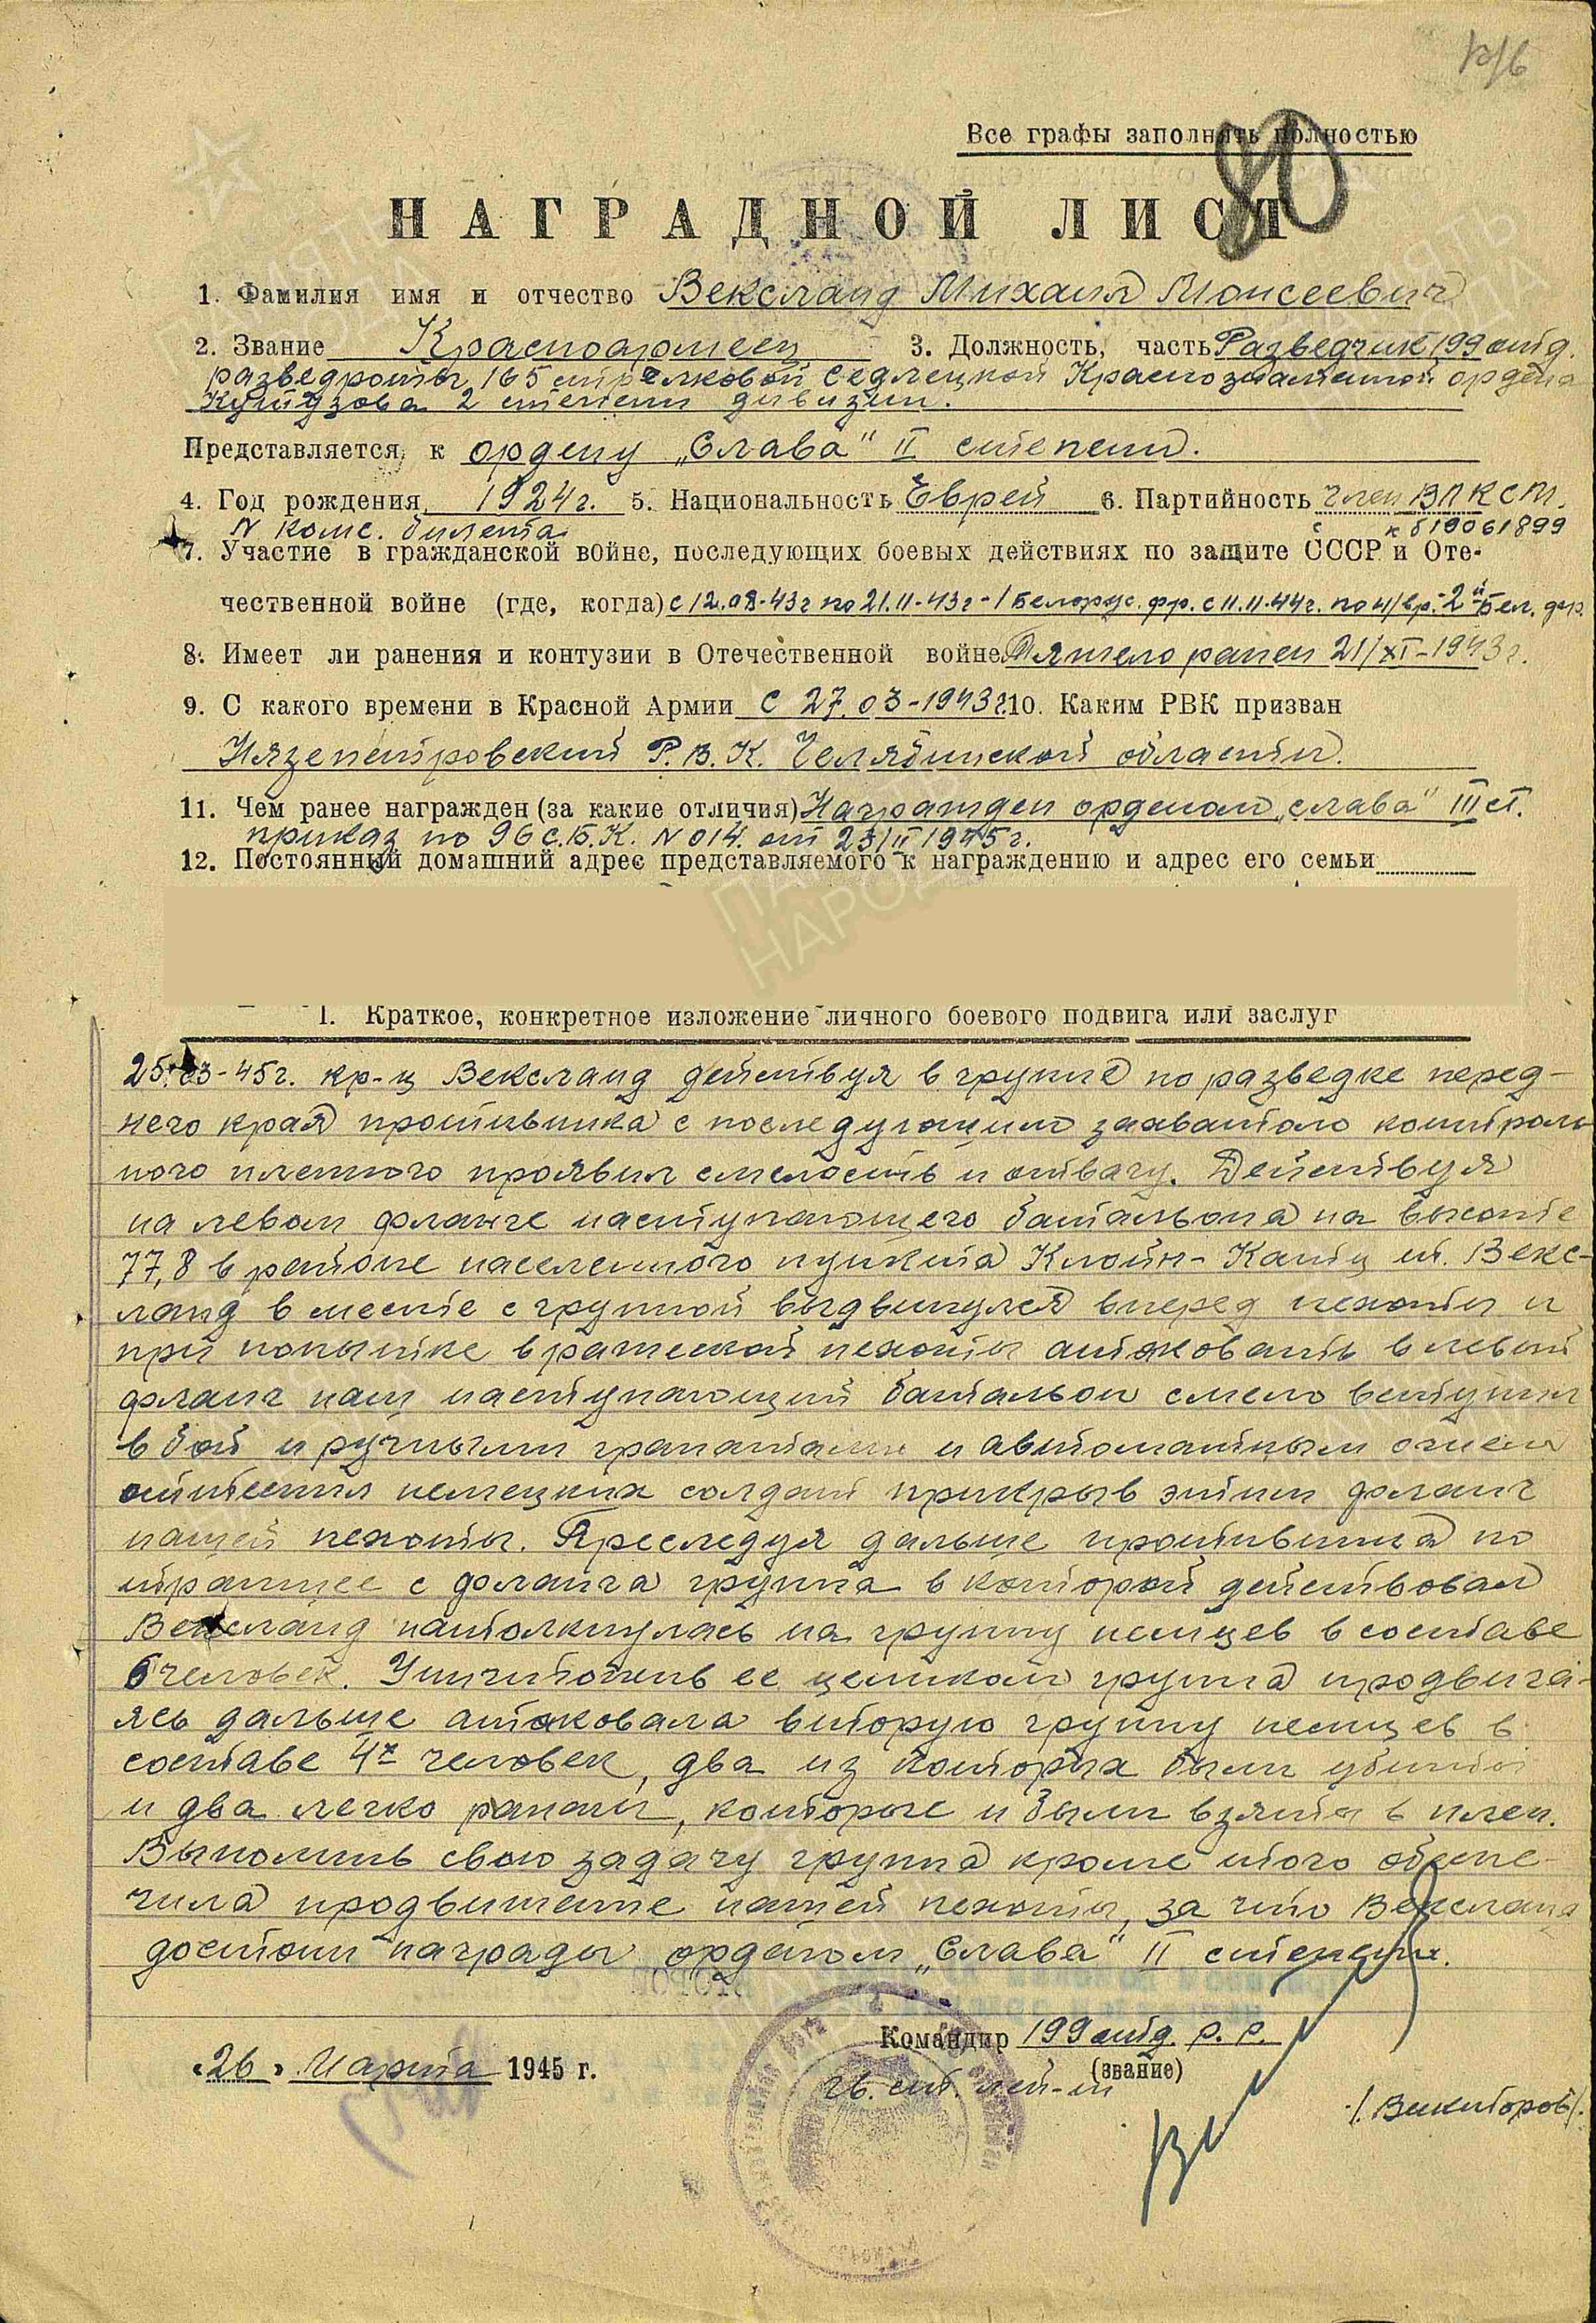 Все графы заполнять полностью
80
НАГРАДНОЙ ЛИСТ
1. Фамилия имя и отчество Вексланд Михаил Моисеевич
2. Звание Красноармеец 3. Должность, часть Разведчик 199 отд.
разведроты 165 стрелковой Седлецкой Краснознаменной ордена
Кутузова 2 степени дивизии.
Представляется к ордену „Слава" II степени.
4. Год рождения 1924г. 5. Национальность Еврей 6. Партийность член ВЛКСМ.
N комс. билета к б19061899
7. Участие в гражданской войне, последующих боевых действиях по защите СССР и Оте-
чественной войне (где, когда) с 12.08-43г по 21.11-43г-1 Белорус. фр. с 11.11.44г. по н/вр.-2й Бел. фр.
8. Имеет ли ранения и контузии в Отечественной войне Тяжело ранен 21/XI-1943г.
9. С какого времени в Красной Армии с 27.03-1943г. 10. Каким РВК призван
Нязепетровский Р.В.К. Челябинской области.
11. Чем ранее награжден (за какие отличия) Награжден орденом „Слава" III ст.
приказ по 96 с.Б.К. N 014. от 23/II 1945г.
12. Постоянный домашний адрес представляемого к награждению и адрес его семьи
1. Краткое, конкретное изложение личного боевого подвига или заслуг
25.03-45г. кр-ц Вексланд действуя в группе по разведке перед-
него края противника с последующим захватом контроль
ного пленного проявил смелость и отвагу. Действуя
на левом фланге наступающего батальона на высоте
77,8 в районе населенного пункта Клайн-Катц т. Векс-
ланд вместе с группой выдвинулся вперед пехоты и
при попытке вражеской пехоты атаковать в левый
фланг наш наступающий батальон смело вступил
в бой и ручными гранатами и автоматным огнем
оттеснил немецких солдат прикрыв этим фланг
нашей пехоты. Преследуя дальше противника по
траншее с фланга группа в которой действовал
Вексланд натолкнулась на группу немцев в составе
6 человек. Уничтожив ее целиком группа продвига-
ясь дальше атаковала вторую группу немцев в
составе 4х человек, два из которых были убиты
и два легко ранены, которые и были взяты в плен.
Выполнив свою задачу группа кроме того обеспе-
чила продвижение нашей пехоты, за что Вексланд
достоин награды орденом „Слава" II степени.
Командир 199 отд. р. р.
«26» Марта 1945 г.
(звание)
гв. ст. лей-т
/. Викторов/.